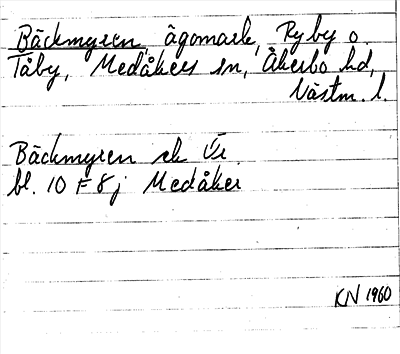 Bäckmyren, ägomark, Ryby o.
Tåby, Medåkers sn, Åkerbo hd,
Västm. l.
Bäckmyren ek Vr.
bl. 10 F 8 j Medåker
KN 1960